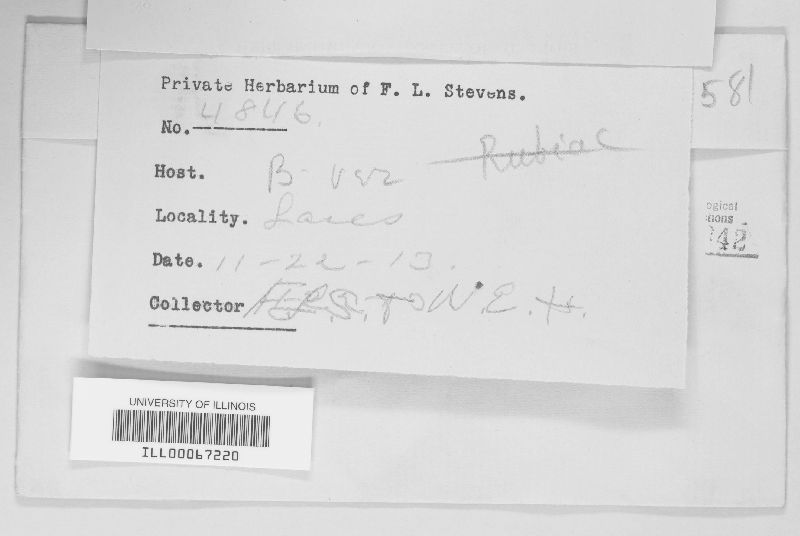 Private Herbarium of F. L. Stevens.
No. 4846.
Host. B. ver Rubiac
Locality. Lares
Date. 11-22-13.
Collector W.E.H.
581
ogical
ions
42
UNIVERSITY OF ILLINOIS
ILL00067220